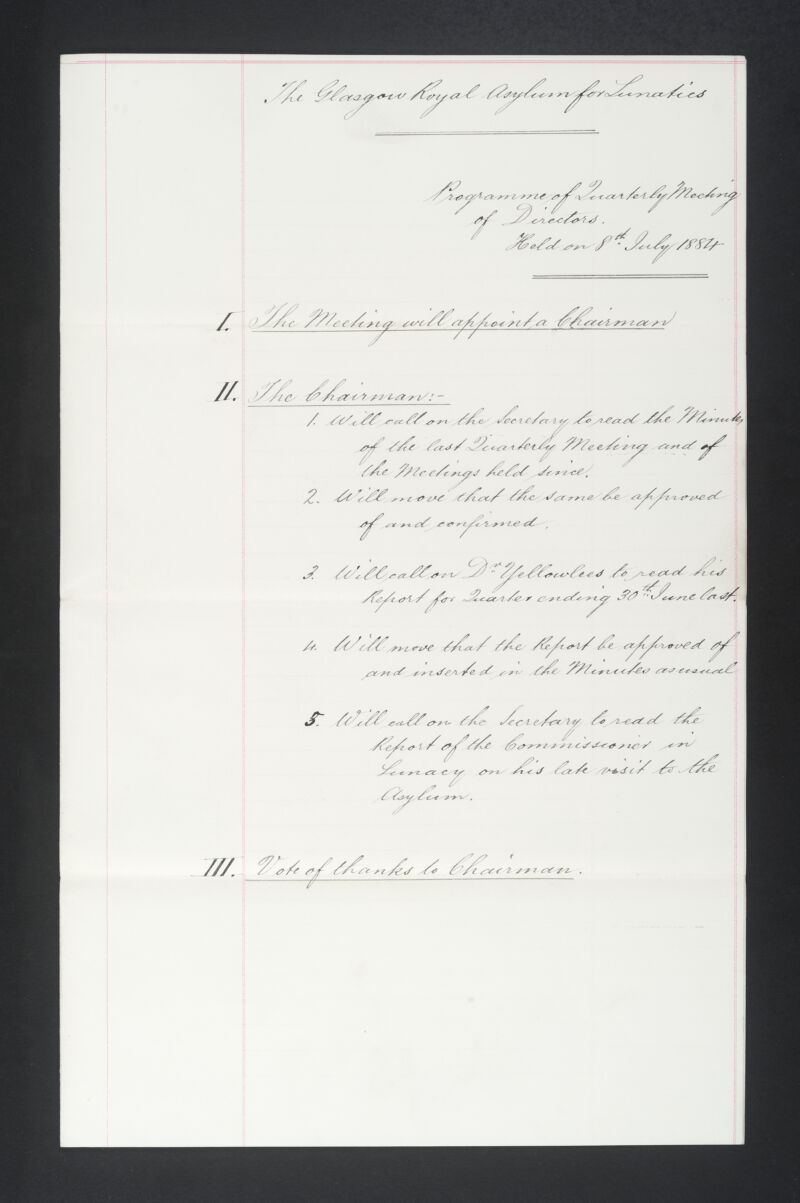 The Glasgow Royal Asylum for Lunatics
Programme of Quarterly Meeting
of Directors.
Held on 8th. July 1884
I. The Meeting will appoint a Chairman
II. The Chairman:-
1. Will call on the Secretary to read the Minutes
of the last Quarterly Meeting and of
the Meetings held since.
2. Will move that the same be approved
of and confirmed.
3. Will call on Dr. Yellowlees to read his
Report for Quarter ending 30th. June last.
4. Will move that the Report be approved of
and inserted in the Minutes as usual
5. Will call on the Secretary to read the
Report of the Commissioner in
Lunacy on his late visit to the
Asylum.
III. Vote of thanks to Chairman.